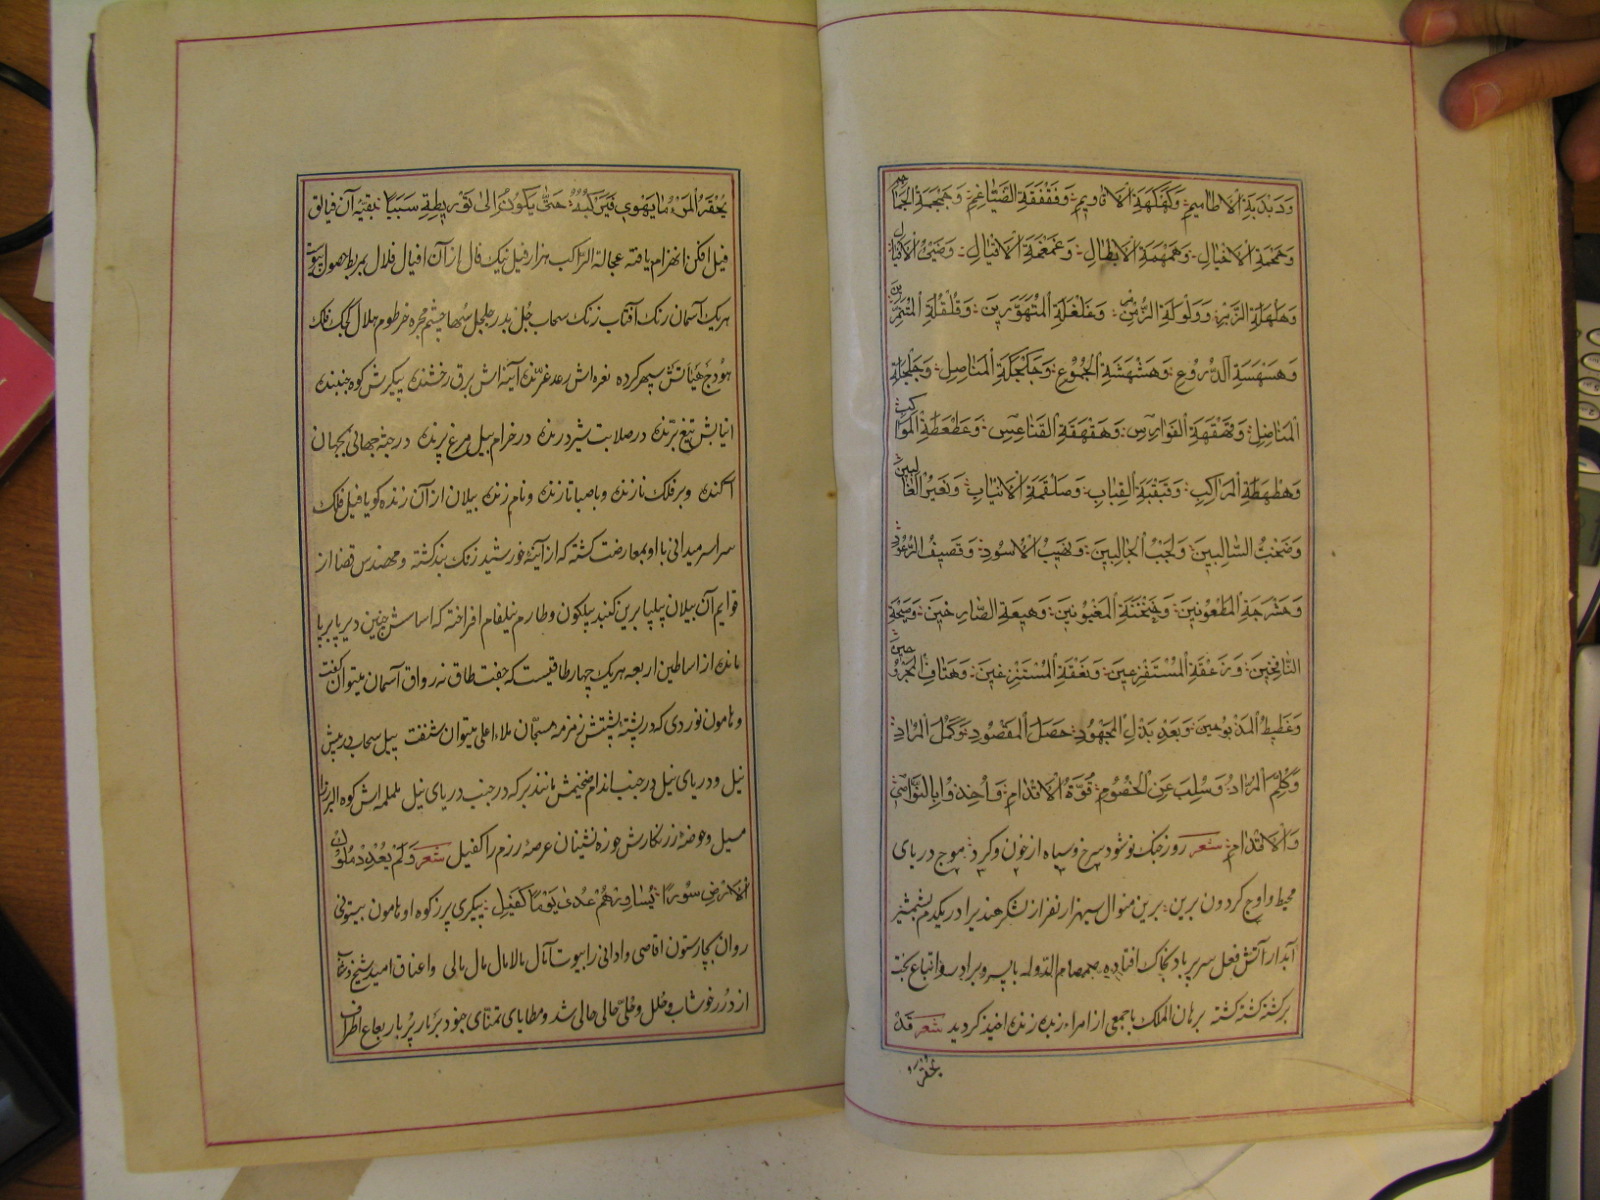 وَدَبدَبَةِ الاَطامیمِ وَکَهکَهَةِ الاَقاویمِ وَقَفقَفَةِ الضَّیاغِمِ وَجَمجَمَةِ الجَماجم
وَحَمحَمَةِ الاَخیالِ وَهَمهَمَةِ الاَبطالِ وَغَمغَمَةِ الاَقیالِ وَضَئیِ الاَفیال
وَهَلهَلَةِ الزَّبرِین وَوَلوَلَةِ الزُّمنِین وَغَلغَلَةِ المُتَهَوِّرینَ وَقَلقَلَةِ المُتَنَمِّرین
وَهَسهَسَةِ الدُّروُعِ وَهَشهَشَةِ الجُموُعِ وَجَکجَکَةِ المَناصِلِ وَجَلجَلَةِ
المَناضِلِ وَقَهقَهَةِ الفَوارِسِ وَهَقهَقَةِ القَناعِسِ وَعَطعَطَةِ المَواکب
وَهَطهَطَةِ المَراکِبِ وَقَبقَبَةِ القِبابِ وَصَلقَمَةِ الاَنیابِ وَنَعیرُ الغالبین
وَضَجَّتُ السّالِبینَ وَلَجَبُ الجالِبینَ وَنَحیبُ الاُسودِ وَقَصیفُ الرُّعوُدِ
وَحَشرَجَةِ المَطعوُنینَ وَخَنخَنَةِ المَغبوُنینَ وَهَیعَةِ الصّارِخینَ وَصَیحَةِ
النّافِخینَ وَزَعقَةِ المُستَفزِعینَ وَنَعقَةِ المُستَنزِفینَ وَهَتافِ المَجروحین
وَغَطیطُ المَذبوُحینَ وَبَعدَ بَذلِ المَجهوُدِ حَصَلَ المَقصُودِ وَکَمُلَ المُرادِ
وَکُلِمَ المُرّادُ وَسُلِبَ عَنِ الخُصُومِ قُوَّةُ الاَقدامِ وَاُخِذوُا بِالنَّواصی
وَالاَقدامِ شعر روز جنک نو شود سرخ و سیاه از خون و کرد موج دریای
محیط و اوج کردون برین برین منوال سیهزار نفر از لشکر هند یرا در یکدم بشمشیر
آبدار آتش فعل سر بر باد بخاک افتاده صمصام الدوله با پسر و برادر و اتباع بخت
برکشته کشته کشته برهان الملک با جمعی از امراء زنده زنده اخیذ کردید شعر قَد
یحقر
یُحقَرُ المَرءُ ما یَهوی فَیَرکَبُهُ حَتّی یَکوُنُ اِلی تَوریطِهِ سَبَبًا بقیّه آن فیالق
فیل افکن انهزام یافته عجالة الرّاکب هزار فیل نیک فال از آن افیال فلال بمربط حصول پیوست
هریک آسمان رنک آفتاب زنک سحاب جُل بدر جلجل سُها چشم مجره خرطوم هلال کجک فلک
هودج هیأتش سپهر کرده نعره اش رعد غرنده آینه اش برق رخشنده پیکرش کوه جنبنده
انیابش تیغ برنده در صلابت شیر درنده در خرام پیل مرغ پرنده در جثه جهانی بجهان
آکنده و بر فلک نازنده و با صبا تازنده و نام زنده پیلان از آن زنده کویا فیل فلک
سراسر میدانی با او بمعارضت کشته که از آینهٔ خورشید زنک بند کشته و مهندس قضا از
قوایم آن پیلان پیلپا برین کنبد پیلکون و طارم نیلفام افراخته که اساسش چنین دیر پا بر پا
مانده از اساطین اربعه هریک چهار طاقیست که جفت طاق نه رواق آسمان میتوان کفت
و هامون نوردی که در پشته پشتش زمزمه مسبّحان ملاء اعلی میتوان شنفت پیل سحاب در پیش
نیل و دریای نیل در جنب اندام ضخیمش مانند برکه در جنب دریای نیل ململه اش کوه البرز را
مسیل و حوضهٔ زرنکارش حوزه نشینان عرصهٔ رزم را کفیل شعر وَلَم یَعُدِد مُلوُک
الاَرضِ سوُرًا یُساورهُم عُدیً یَومًا کَفیلٍ پیکری پرز کوه او هامون بیستونی
روان بچار ستون اقاصی و ادانی را بیوت آمال مالامال مال مالی و اعناق امید شیخ و شاب
از دُرَر خوشاب و حُلَل و حُلیّ حالی حالی شد و مطایای تمنّای جنود بَر بار پُر بار بقاع اطراف